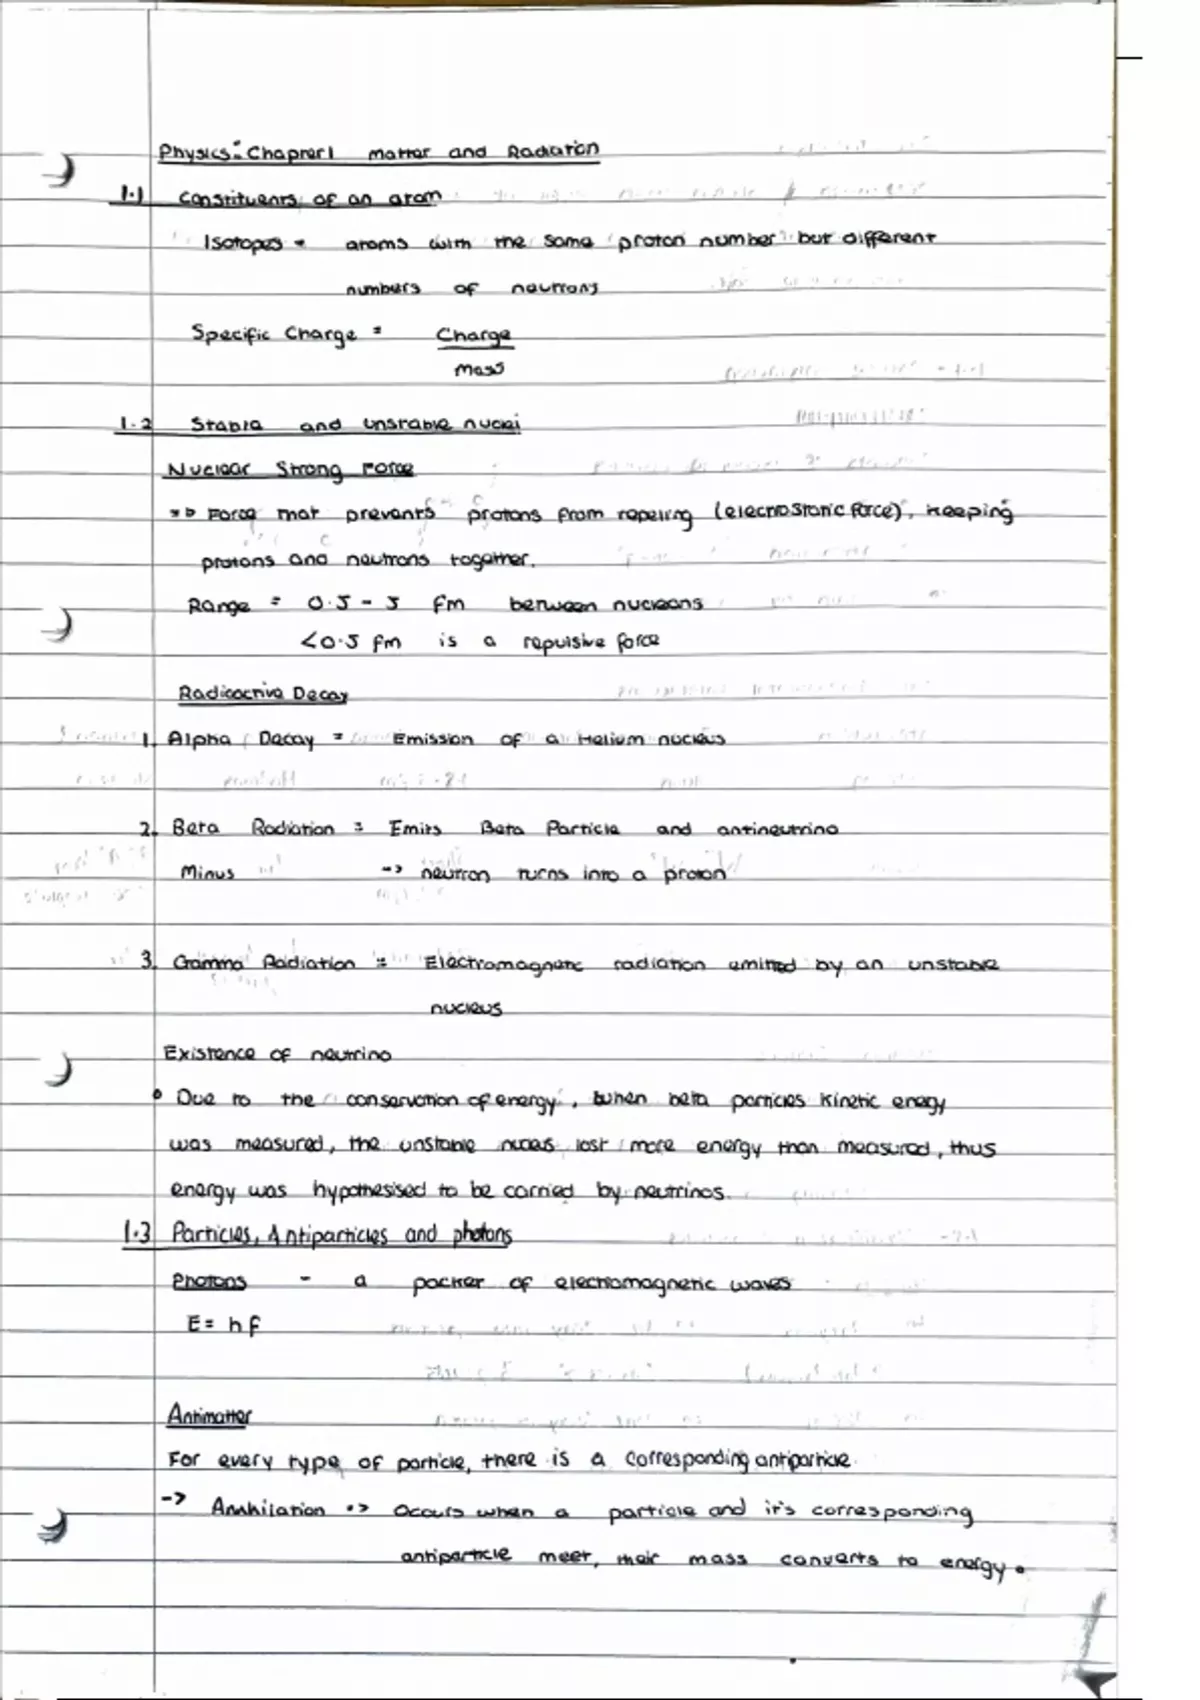 Physics: Chapter 1 matter and Radiation
1.1 Constituents of an atom
Isotopes = atoms with the same proton number but different
numbers of neutrons
Specific Charge = Charge
mass
1.2 Stable and unstable nuclei
Nuclear Strong Force
=> Force that prevents protons from repeling (electrostatic force), keeping
protons and neutrons together.
Range = 0.5 - 3 fm between nucleons
<0.5 fm is a repulsive force
Radioactive Decay
1. Alpha Decay = Emission of a Helium nucleus
2. Beta Radiation = Emits Beta Particle and antineutrino
Minus -> neutron turns into a proton
3. Gamma Radiation = Electromagnetic radiation emitted by an unstable
nucleus
Existence of neutrino
• Due to the conservation of energy, when beta particles kinetic energy
was measured, the unstable nucleus lost more energy than measured, thus
energy was hypothesised to be carried by neutrinos.
1.3 Particles, Antiparticles and photons
Photons - a packet of electromagnetic waves
E = hf
Antimatter
For every type of particle, there is a corresponding antiparticle
-> Annhilation => Occurs when a particle and it's corresponding
antiparticle meet, their mass converts to energy.